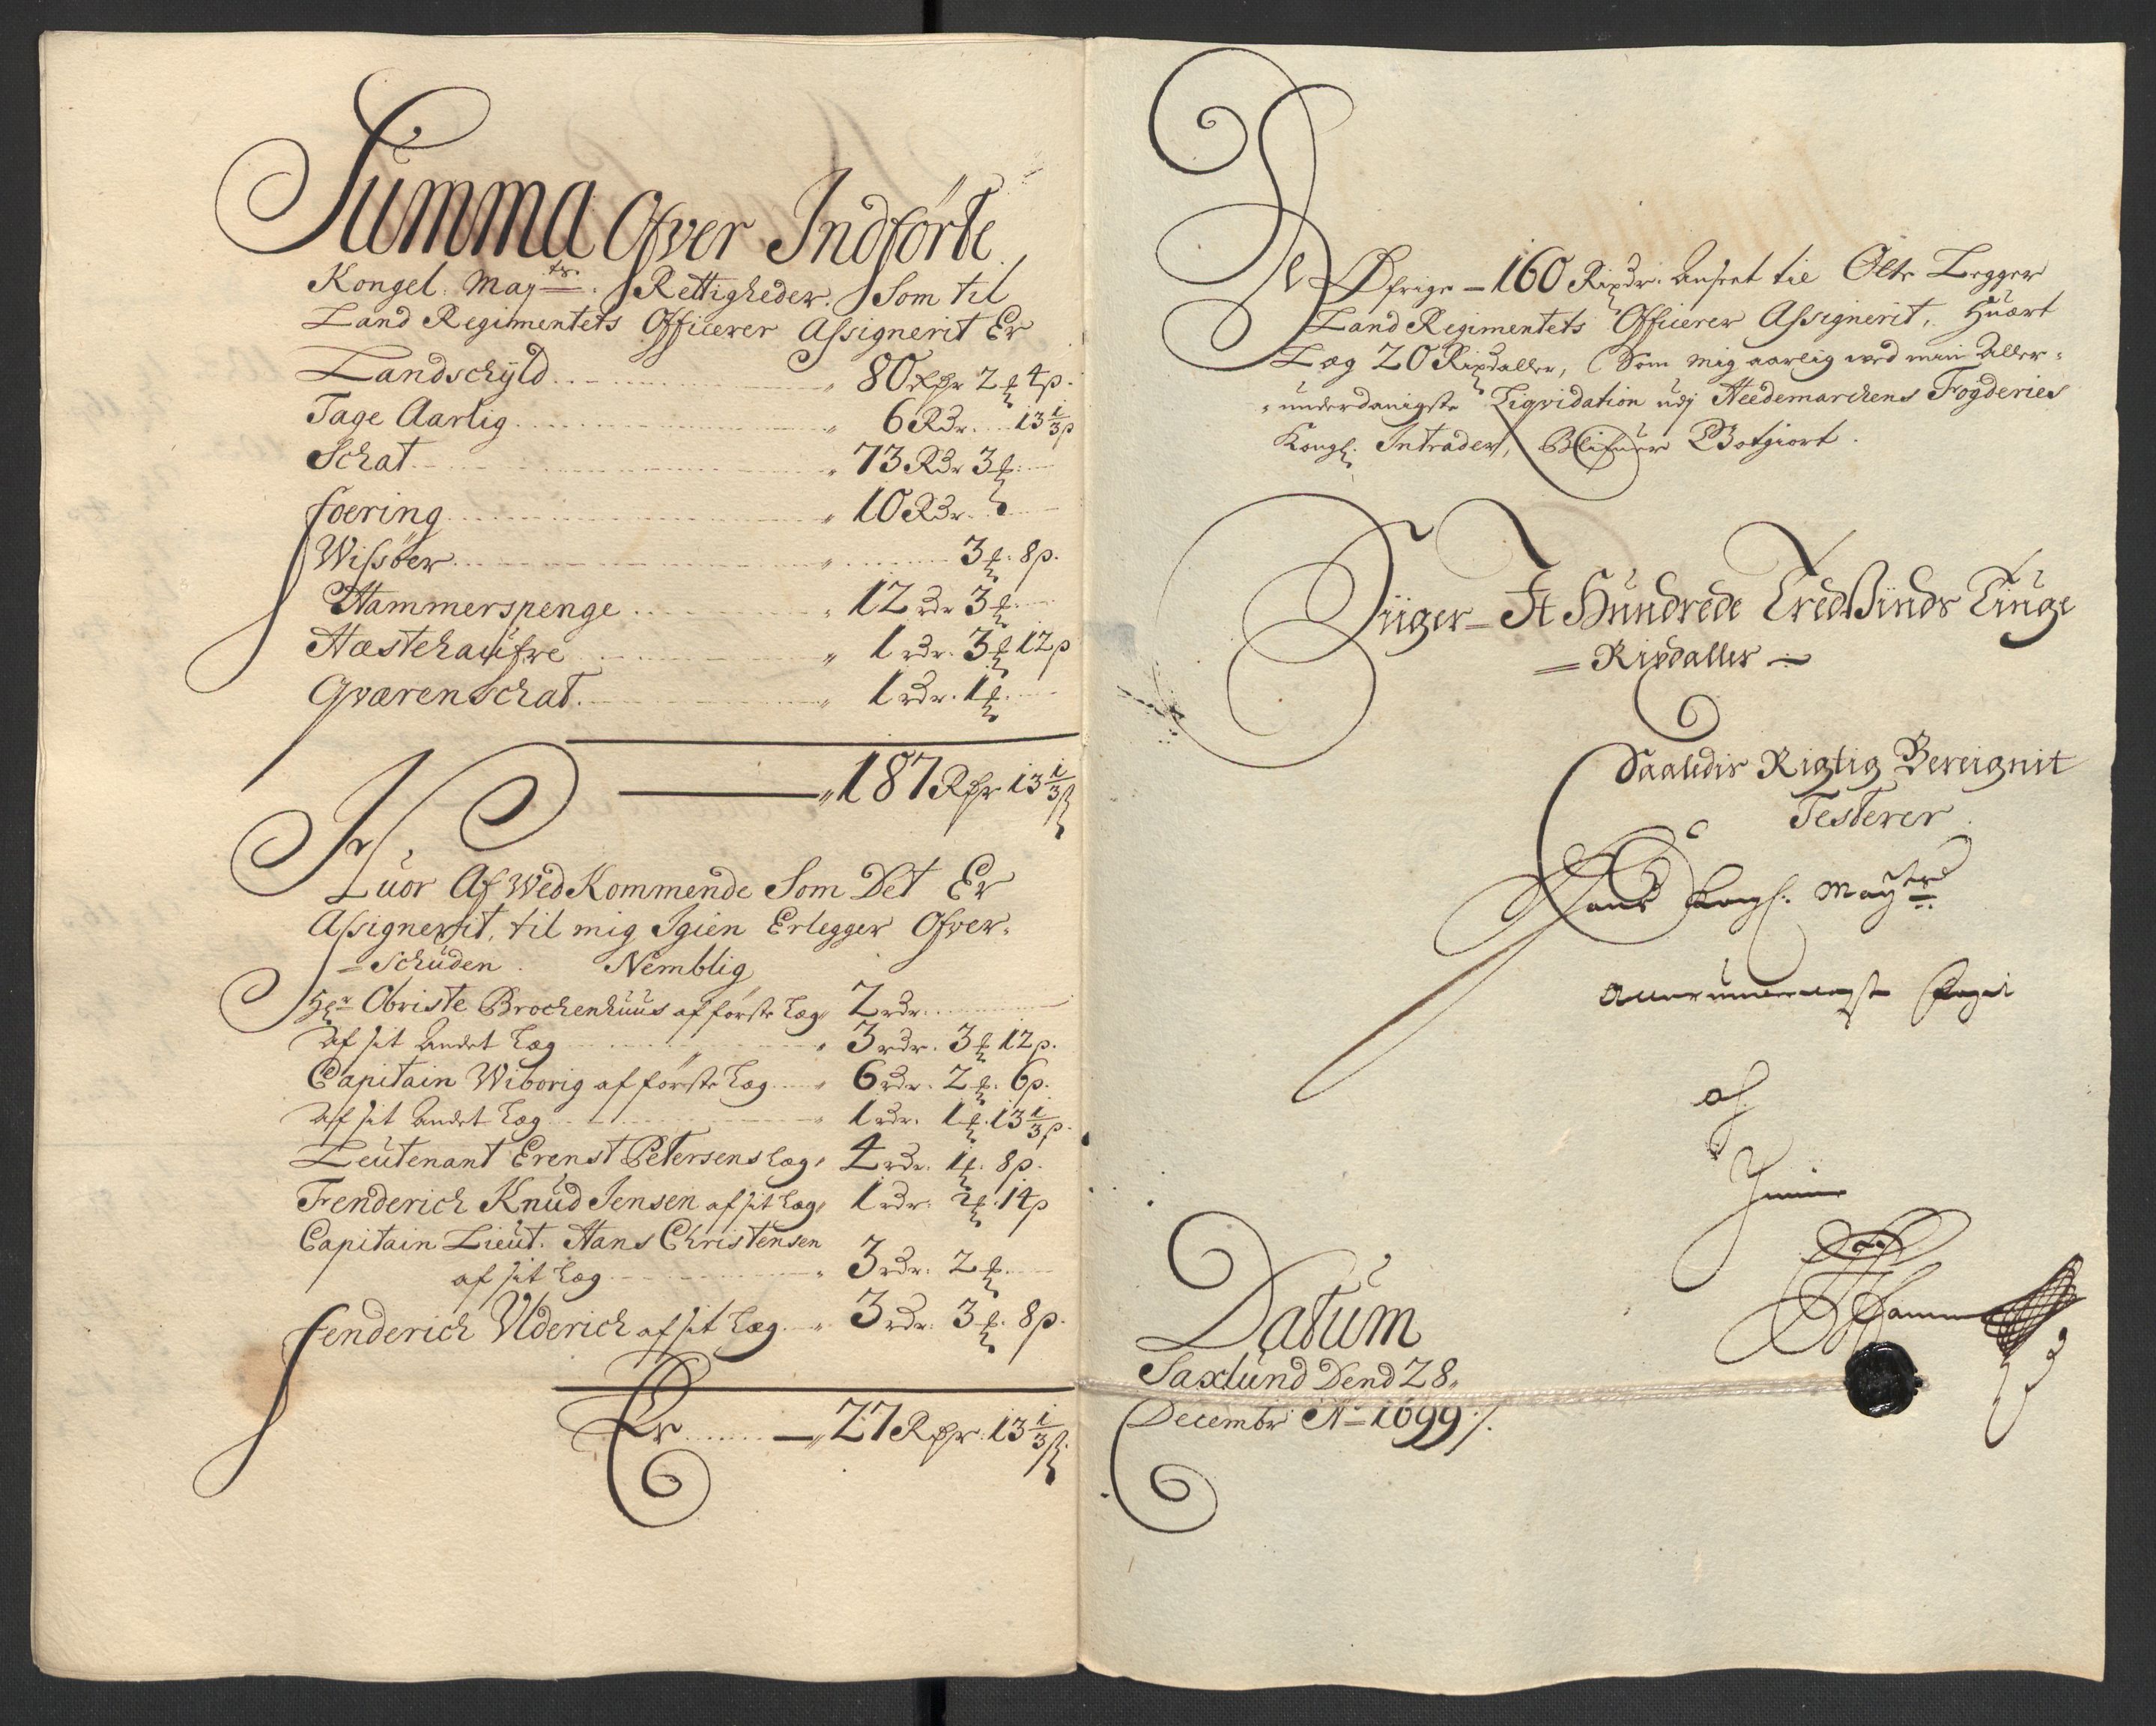 Summa Ofver Indförte
Kongel. Maytz. Rettigheder. Som til
Land Regimentets Officerer Assignerit Er
Landschyld " 80 Rdr 2 ₰ 4 β.
Tage Aarlig " 6 Rdr. 13 1/3 β
Schat " 73 Rdr 3 ₰.
foering " 10 Rdr.
Wissöer " 3 ₰. 8 β.
Hammerspenge " 12 rdr 3 ₰.
Hæstehaufre " 1 rdr. 3 ₰ 12 β
Qværenschat " 1 rdr. 1 ₰.
" 187 Rdr 13 1/3 β
Huor Af Wed Kommende Som Det Er
Assignerit, til mig Igien Erlegger Ofver-
=Schuden. Nemblig
Hr Obriste Brochenhuus af förste Læg, 2 rdr.
Af sit Andet Læg " 3 rdr. 3 ₰ 12 β.
Capitain Wiborig af förste Læg " 6 rdr. 2 ₰. 6 β.
Af sit Andet Læg " 1 rdr. 1 ₰. 13 1/3 β.
Leutenant Erenst Petersens Læg, 4 rdr. 1 ₰. 8 β.
Frenderich Knud Jensen af sit Læg, 1 rdr. 2 ₰. 14 β
Capitain Lieut. Hans Christensen
af sit Læg " 3 rdr. 2 ₰.
fenderich Ulderich af sit Læg " 3 rdr. 3 ₰. 8 β.
Er " 27 Rdr. 13 1/3 β.
De Öfrige - 160 Rixdr. Anseet til Otte Legger
Land Regimentets Officerer Assignerit, Huært
Læg 20 Rixdaller, Som mig aarlig ved min Aller-
-underdanigste Liqvidation udj Heedemarchens Fogderies
Kongl. Intrader, Blifuer Gotgiort.
Siiger - It Hundrede Tredsinds Tiuge
= Rixdaller -
Saaledis Rigtig Bereignit
Testerer
Hans Kongl. Mayts
Allerunderdanigst
af
Datum
Saxlund Dend 28.
Decembr Ao 1699 /.